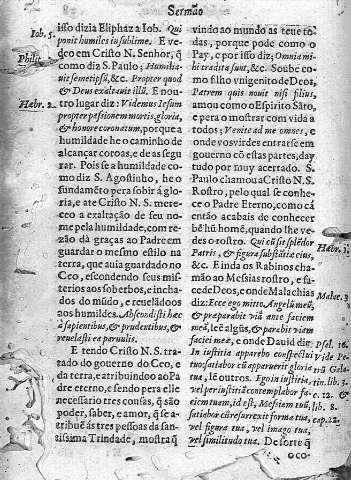 Sermão
isso dizia Eliphaz a Iob. Qui
ponit humiles in sublime. E ve-
do em Cristo N. Senhor, q̃
como diz S. Paulo; Humilia-
uit semetipsũ, &c. Propter quod
& Deus exaltauit illũ. E nou-
tro lugar diz: Videmus Iesum
propter passionem mortis, gloria,
& honore coronatum, porque a
humildade he o caminho de
alcançar coroas, e de as segu
rar. Pois se a humildade co-
mo diz S. Agostinho, he o
fundamẽto pera sobir á glo-
ria, e ate Cristo N. S. mere-
ceo a exaltação de seu no-
me pela humildade, com re-
zão dá graças ao Padre em
guardar o mesmo estilo na
terra, que auia guardado no
Ceo, escondendo seus mis-
terios aos soberbos, e incha-
dos do mũdo, e reuelãdo os
aos humildes. Abscondisti hæc
à sapientibus, & prudentibus, &
reuelasti ea paruulis.
E tendo Cristo N. S. tra-
tado do governo do Ceo, e
da terra, e atribuindo ao Pa-
dre eterno, e sendo pera elle
necessario tres cousas, q̃ são
poder, saber, e amor, q̃ se a-
tribuẽ ás tres pessoas da san-
tissima Trindade, mostra q̃
Iob. 5.
Philip.
Hæbr. 2.
vindo ao mundo as teue to-
das, porque pode como o
Pay, e por isso diz; Omnia mi-
hi tradita sunt, &c. Soube co-
mo filho vnigenito de Deos,
Patrem quis nouit nisi filius,
amou como o Espirito Sãto,
e pera o mostrar com vida a
todos; Venite ad me omnes, e
onde vos virdes entrar se em
governo cõ estas partes, day
tudo por muy acertado. S.
Paulo chamou a Cristo N. S.
Rostro, pelo qual se conhe-
ce o Padre Eterno, como cá
então acabais de conhecer
bẽ hũ homẽ, quando lhe ve-
des o rostro. Qui cũ sit splẽdor
Patris, & figura substãtiæ eius,
&c. E inda os Rabinos cha-
mão ao Messias rostro, e fa-
ce de Deos, e onde Malachias
diz: Ecce ego mitto Angelũ meũ,
& præparabit viã ante faciem
meã, lem algũs, & parabit viam
faciei meæ, e onde Dauid diz:
In iustitia apparebo conspectui
tuo satiabor cũ apparuerit gloria
tua, lẽ outros. Ego in iustitia,
vel per iustitiã contemplabor fa-
ciem tuam, id est, Messiam tuũ,
satiabor cũ resurrexit forma tua,
vel figura tua, vel imago tua,
vel similitudo tua. De sorte q̃
oco-
Hæbr. 1.
Malac. 3.
Psal. 16.
vide Pe-
trũ Gala-
tin. lib. 3.
c. 12. &
lib. 8.
cap. 22.